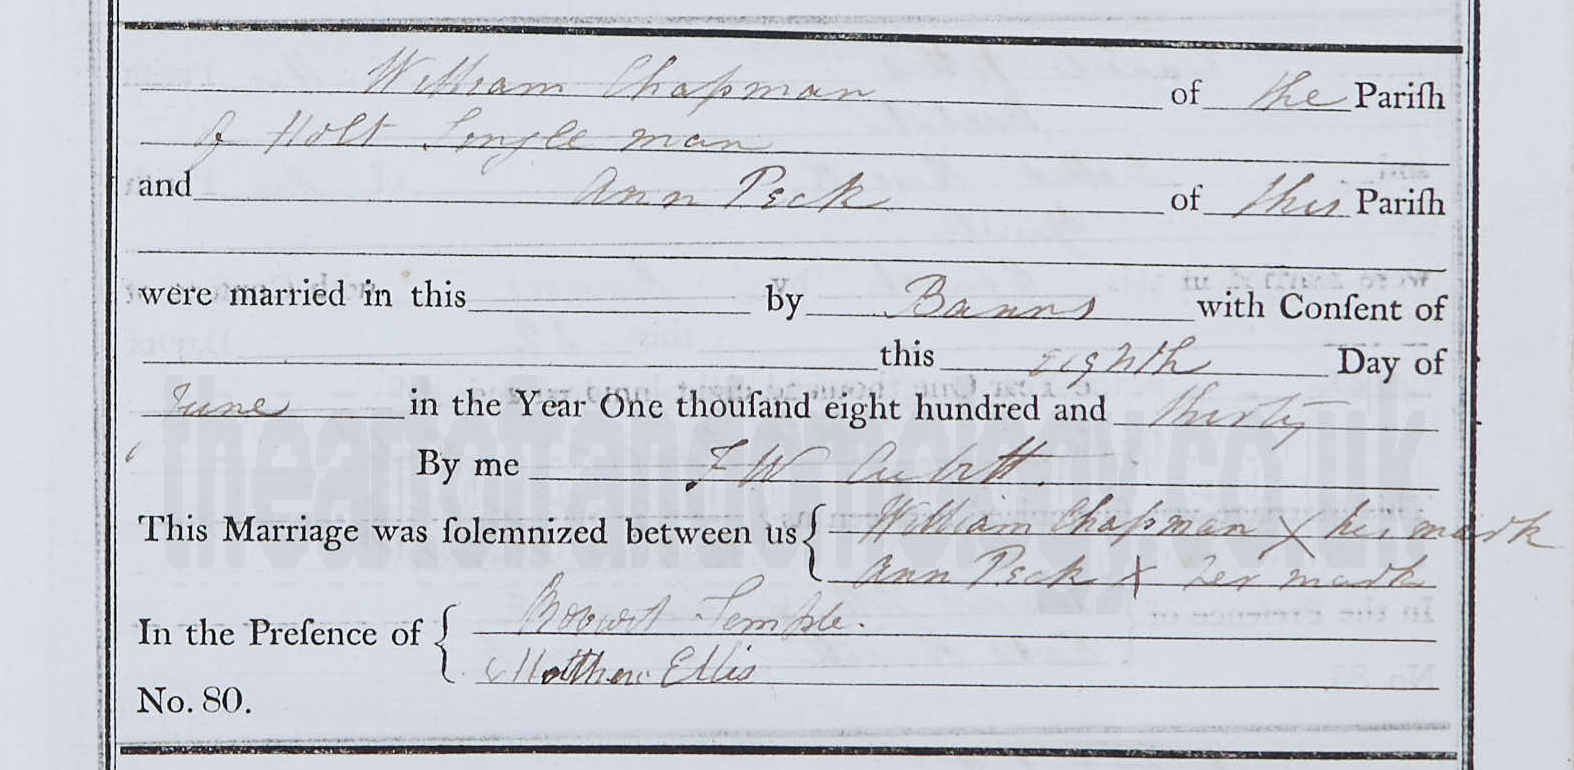 William Chapman of the Pariſh
of Holt Single man
and Ann Peck of this Pariſh
were married in this by Banns with Conſent of
this Eighth Day of
June in the Year One thouſand eight hundred and thirty
By me F W Cubitt.
This Marriage was ſolemnized between us { William Chapman X his mark
Ann Peck X her mark
In the Preſence of { Temple.
Matthew Ellis
No. 80.
theartofrandomemory.co.uk